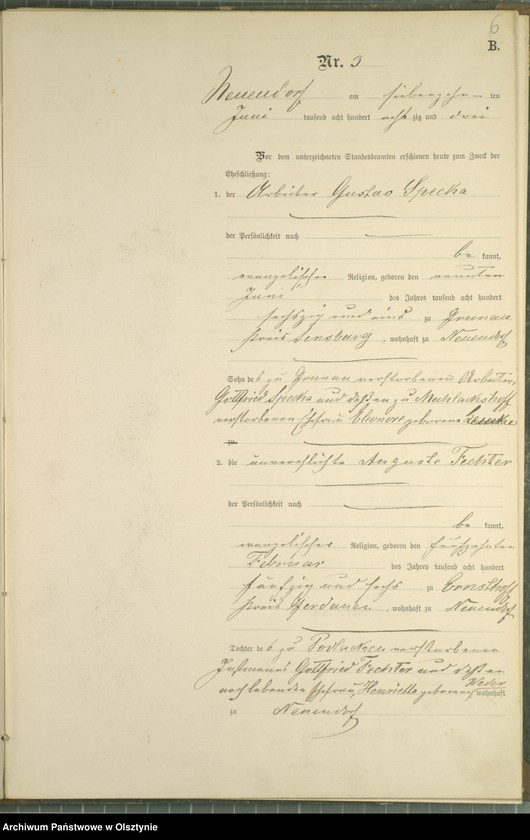 6
B.
Nr. 3
Neuendorf am siebenzehnten
Juni tausend acht hundert achtzig und drei
Vor dem unterzeichneten Standesbeamten erschienen heute zum Zweck der
Eheschließung:
1. der Arbeiter Gustav Specka
der Persönlichkeit nach
bekannt,
evangelischer Religion, geboren den neunten
Juni des Jahres tausend acht hundert
sechszig und eins zu Grunau
Kreis Sensburg, wohnhaft zu Neuendorf
Sohn des zu Grunau verstorbenen Arbeiters
Gottfried Specka und dessen zu
verstorbenen Ehefrau Eleonore geborene
zu
2. die unverehlichte Auguste Fechter
der Persönlichkeit nach
bekannt,
evangelischer Religion, geboren den fünfzehnten
Februar des Jahres tausend acht hundert
fünfzig und sechs zu Ernsthof
Kreis Gerdauen, wohnhaft zu Neuendorf
Tochter des zu verstorbenen
Instmanns Gottfried Fechter und dessen
noch lebenden Ehefrau, Henriette geborene wohnhaft
zu Neuendorf
Archiwum Państwowe w Olsztynie